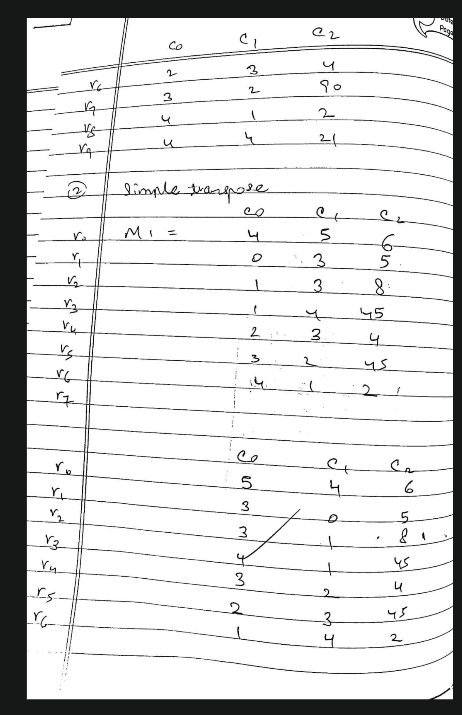 c0 c1 c2
2 3 4
r6 3 2 90
r7 4 1 2
r8 4 4 21
r9
② Simple transpose
c0 c1 c2
r0 M1 = 4 5 6
r1 0 3 5
r2 1 3 8
r3 1 4 45
r4 2 3 4
r5 3 2 45
r6 4 1 2
r7
c0 c1 c2
r0 5 4 6
r1 3 0 5
r2 3 1 8
r3 4 1 45
r4 3 2 4
r5 2 3 45
r6 1 4 2